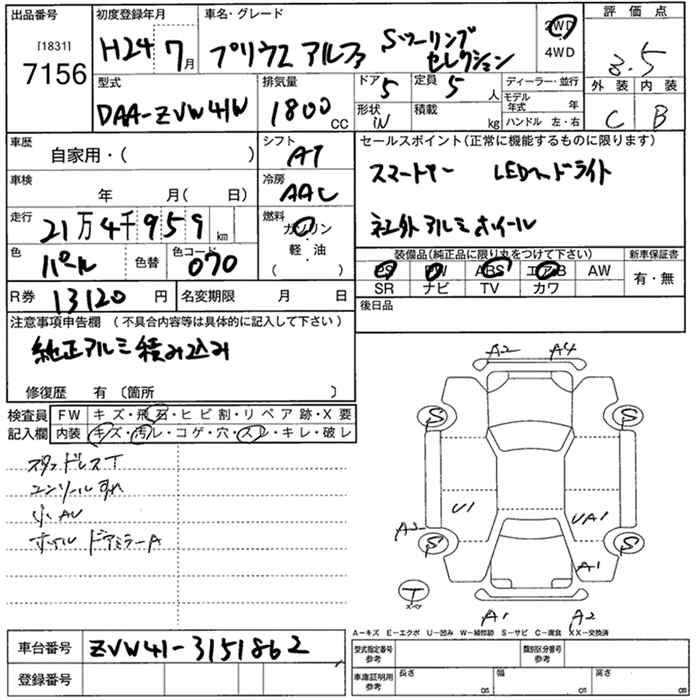 出品番号 [1831] 7156
初度登録年月 H24 7月
車名・グレード プリウス アルファ Sツーリング セレクション
2WD
4WD
評価点 3.5
外装 内装
C B
型式 DAA-ZVW41W
排気量 1800 CC
ドア 5
定員 5 人
形状 in
積載 kg
ディーラー・並行
モデル年式 年
ハンドル 左・右
車歴 自家用・( )
シフト AT
車検 年 月( 日)
冷房 AAC
走行 21万4千959 km
燃料 ガソリン・軽・油 ( )
色 パール 色替 色コード 070
R券 13120 円 名変期限 月 日
セールスポイント(正常に機能するものに限ります)
スマートキー LEDヘッドライト
社外アルミホイール
装備品(純正品に限り丸をつけて下さい)
PS PW ABS エアB AW
SR ナビ TV カワ
新車保証書
有・無
後日品
注意事項申告欄 (不具合内容等は具体的に記入して下さい)
純正アルミ積み込み
修復歴 有 〔箇所 〕
検査員記入欄
FW キズ・飛石・ヒビ割・リペア跡・X要
内装 キズ・汚レ・コゲ・穴・スレ・キレ・破レ
スタッドレスT
コンソールすれ
小AU
ホイル ドアミラーA
A2 A4
S S
U1 UA1
A2
S S
A1
T
スペア
A1 A2
A-キズ E-エクボ U-凹み W-補修跡 S-サビ C-腐食 XX-交換済
車台番号 ZVW41-3151862
登録番号
型式指定番号 参考
類別区分番号 参考
車庫証明用 参考
長さ cm 幅 cm 高さ cm